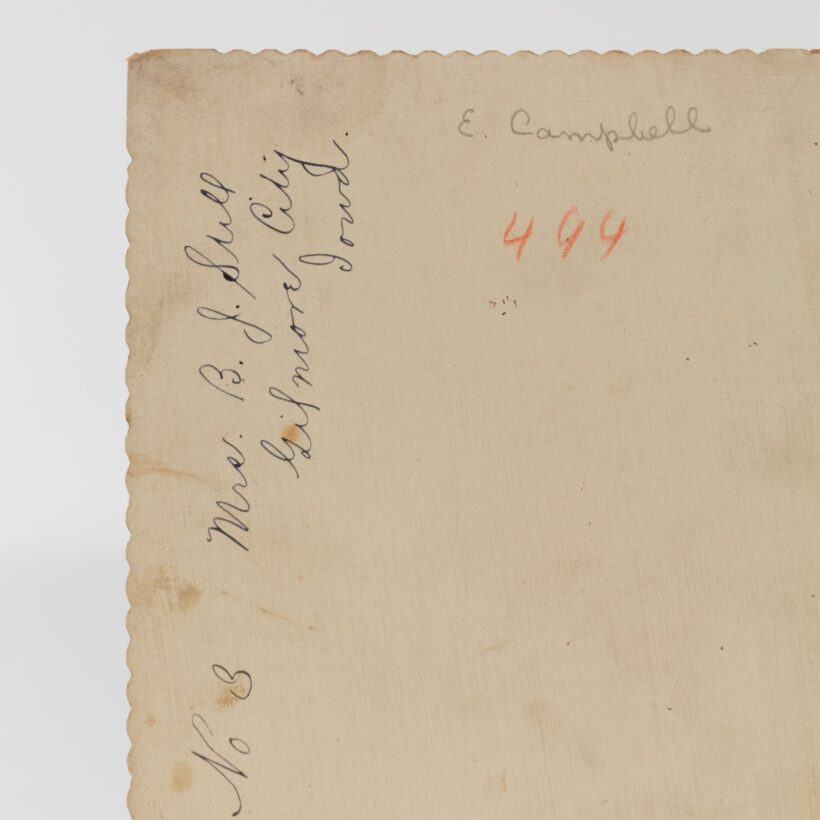 E. Campbell
494
No 3 Mrs. B. J. Still
Gilmore City
Iowa.